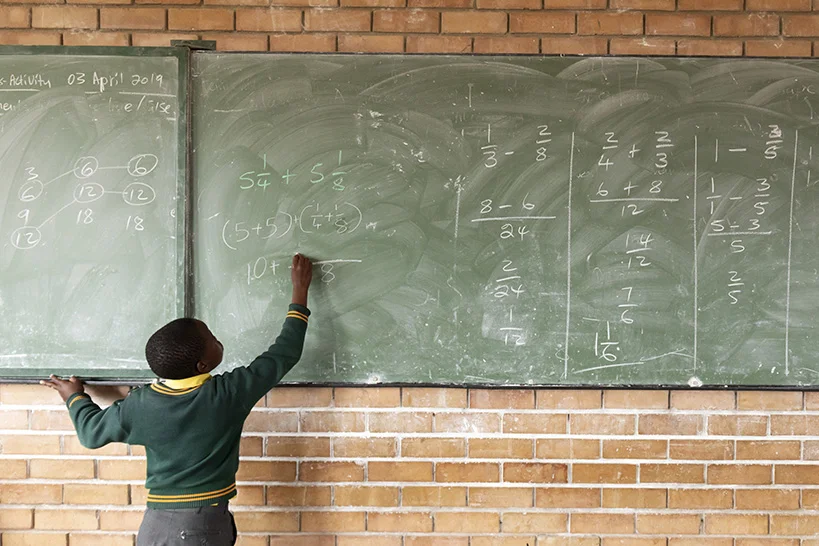 Activity 03 April 2019
3 6 6
6 12 12
9 18 18
12
5 1/4 + 5 1/8
(5+5)+(1/4+1/8)
10+ —/8
1/3 - 2/8
8 - 6
24
2/24
1/12
2/4 + 2/3
6 + 8
12
14/12
7/6
1 1/6
1 - 3/5
1/1 - 3/5
5 - 3
5
2/5